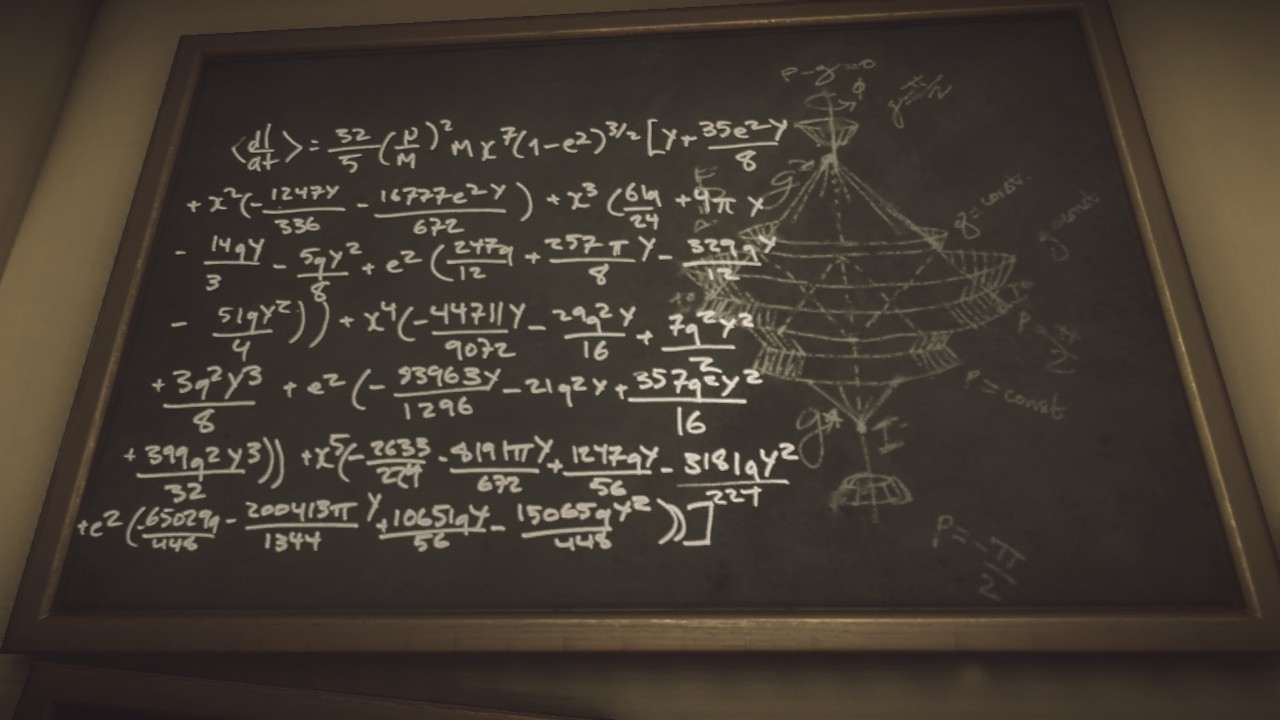 ⟨dI/at⟩ = 32/5 (μ/M)² M x⁷ (1-e²)^3/2 [Y + 35e²Y/8
+ x² (- 1247Y/336 - 16777e²Y/672) + x³ (61q/24 + 4π Y
- 14qY/3 - 5qY²/8 + e² (247q/12 + 257πY/8 - 329qY/12
- 51qY²/4)) + x⁴ (- 44711Y/9072 - 29q²Y/16 + 7q²Y²/2
+ 3q²Y³/8 + e² (- 83963Y/1296 - 21q²Y + 357q²Y²/16
+ 399q²Y³/32)) + x⁵ (- 2635/224 - 8191πY/672 + 1247qY/56 - 3181qY²/224
+ e² (65029q/448 - 200413πY/1344 + 10651qY/56 - 15065qY²/448))]
P = π/2
P = const
P = -π/2